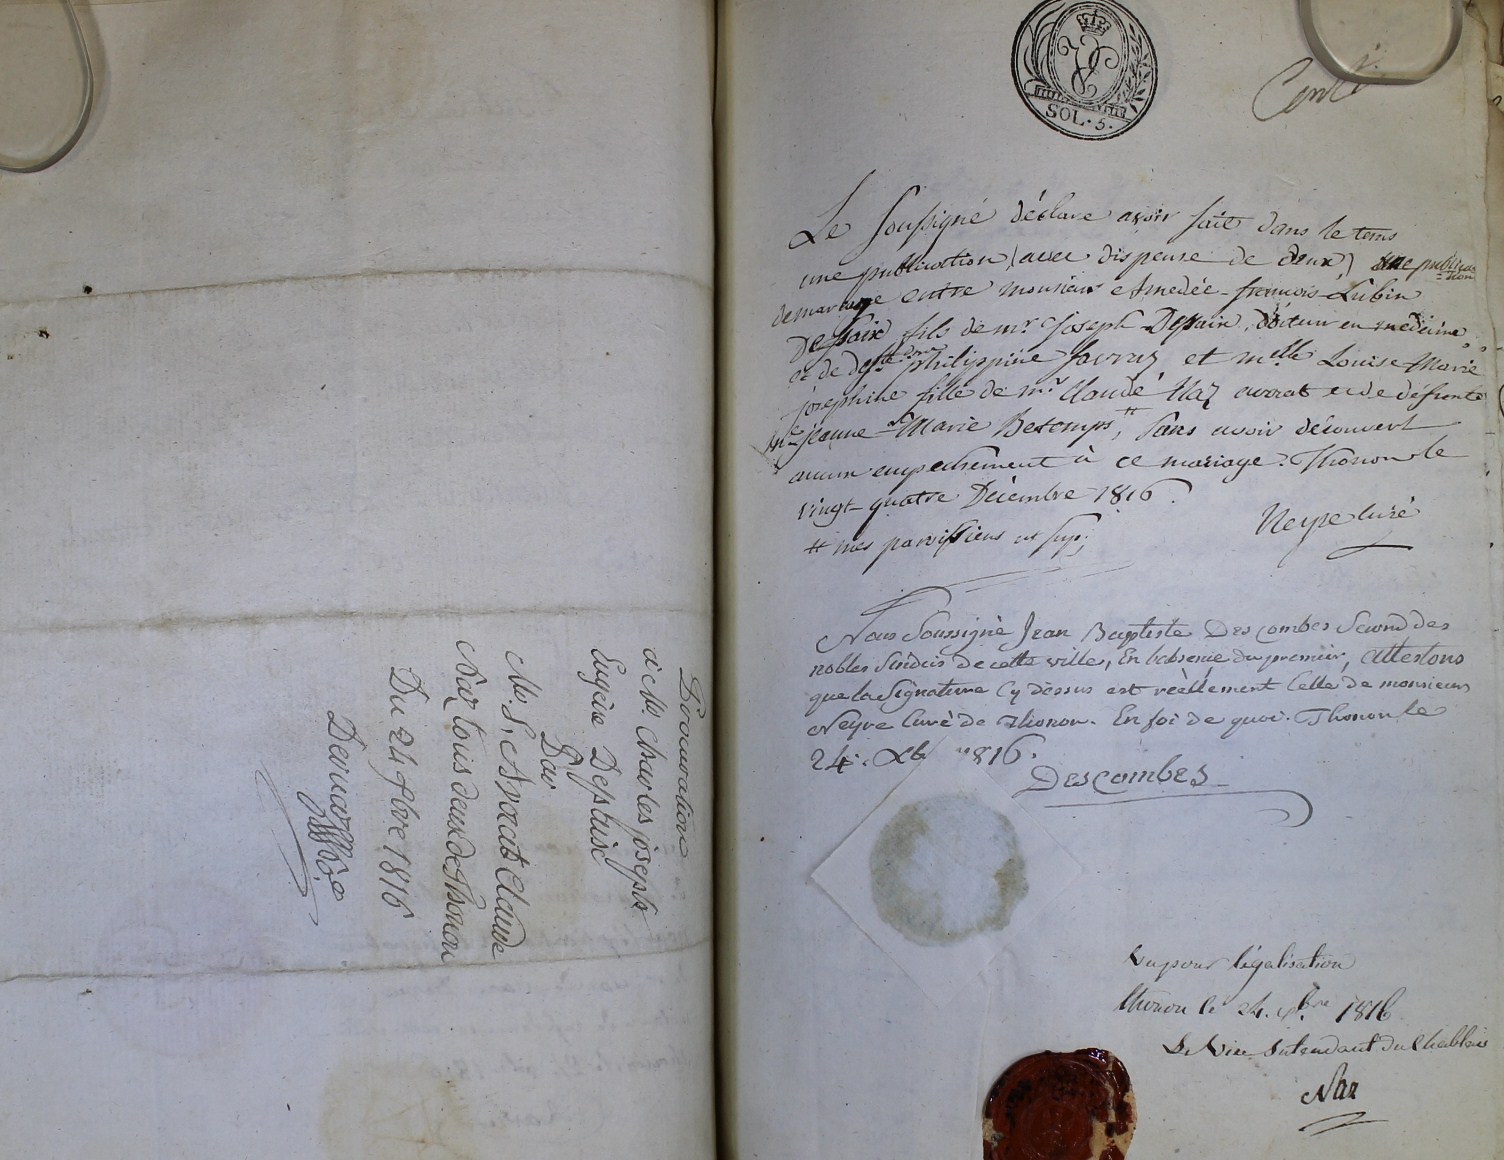 Procuration
à Mr. Charles joseph
Eugène Dessaise
Par
Mr. S. Avocat Claude
Naz tous deux de Thonon
Du 24 Xbre 1816
SOL. 5.
Le soussigné déclare avoir fait dans le tems
une publication (avec dispense de deux) publica=
=tion
de mariage entre monsieur Amedée-françois-Lubin
Dessaix fils de mr. Joseph Dessaix, docteur en medecine,
et de Philippine et melle Louise Marie
josephine fille de mr. Claude Naz avocat et de défunte
jeanne Marie Betemps #, sans avoir découvert
aucun empechement à ce mariage. Thonon le
vingt-quatre Décembre 1816.
# mes paroissiens
Neyre Curé
Nous Soussigné Jean Baptiste Descombes Second des
nobles Sindics de cette ville, En l'absence du premier, attestons
que la Signature Cy dessus est réellement Celle de monsieur
Neyre Curé de Thonon. En foi de quoi. Thonon le
24. Xb 1816.
Descombes
Vu pour légalisation
Thonon le 24. Xbre 1816
Le Vice Intendant du Chablais
Naz